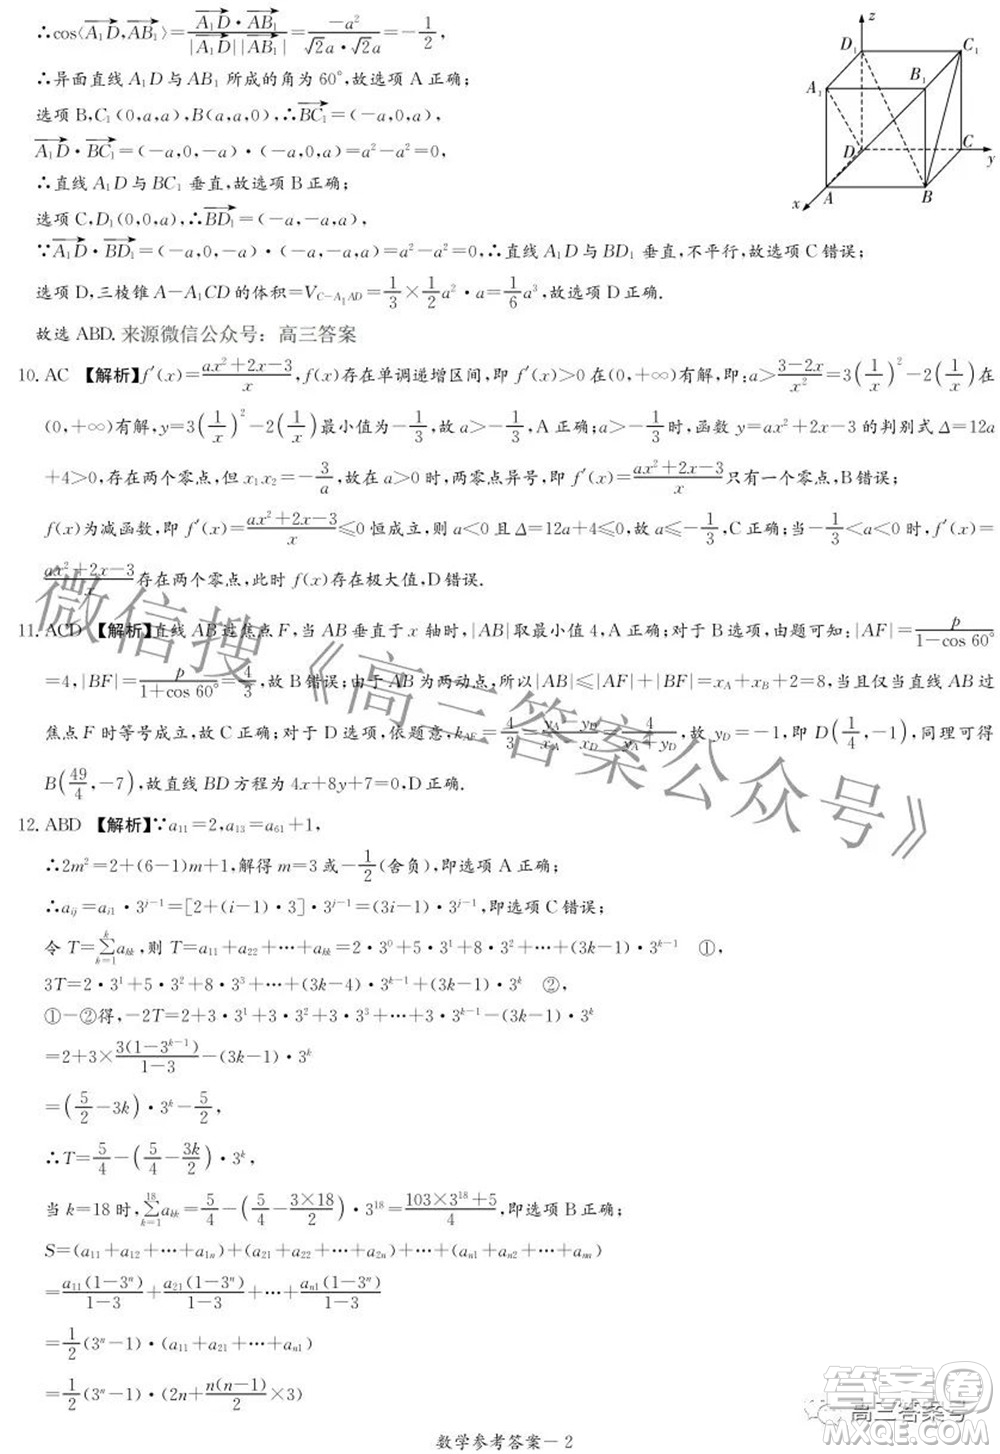 ∴cos⟨A₁D,AB₁⟩=A₁D·AB₁/(|A₁D||AB₁|)=-a²/(√2a·√2a)=-1/2,
∴异面直线 A₁D 与 AB₁ 所成的角为 60°,故选项 A 正确;
选项 B,C₁(0,a,a),B(a,a,0),∴BC₁=(-a,0,a),
A₁D·BC₁=(-a,0,-a)·(-a,0,a)=a²-a²=0,
∴直线 A₁D 与 BC₁ 垂直,故选项 B 正确;
选项 C,D₁(0,0,a),∴BD₁=(-a,-a,a),
∵A₁D·BD₁=(-a,0,-a)·(-a,-a,a)=a²-a²=0,∴直线 A₁D 与 BD₁ 垂直,不平行,故选项 C 错误;
选项 D,三棱锥 A-A₁CD 的体积=V_{C-A₁AD}=1/3×1/2a²·a=1/6a³,故选项 D 正确.
故选 ABD. 来源微信公众号：高三答案
z
D₁
C₁
A₁
B₁
D
C
y
A
B
x
10. AC 【解析】f′(x)=(ax²+2x-3)/x,f(x)存在单调递增区间,即 f′(x)>0 在(0,+∞)有解,即:a>(3-2x)/x²=3(1/x)²-2(1/x)在
(0,+∞)有解,y=3(1/x)²-2(1/x)最小值为-1/3,故 a>-1/3,A 正确;a>-1/3时,函数 y=ax²+2x-3 的判别式 Δ=12a
+4>0,存在两个零点,但 x₁x₂=-3/a,故在 a>0 时,两零点异号,即 f′(x)=(ax²+2x-3)/x只有一个零点,B 错误;
f(x)为减函数,即 f′(x)=(ax²+2x-3)/x≤0 恒成立,则 a<0 且 Δ=12a+4≤0,故 a≤-1/3,C 正确;当-1/3<a<0 时,f′(x)=
(ax²+2x-3)/x存在两个零点,此时 f(x)存在极大值,D 错误.
11. ACD 【解析】直线 AB 过焦点 F,当 AB 垂直于 x 轴时,|AB|取最小值 4,A 正确;对于 B 选项,由题可知:|AF|=p/(1-cos 60°)
=4,|BF|=p/(1+cos 60°)=4/3,故 B 错误;由于 AB 为两动点,所以|AB|≤|AF|+|BF|=x_A+x_B+2=8,当且仅当直线 AB 过
焦点 F 时等号成立,故 C 正确;对于 D 选项,依题意,k_{AF}=4/3=(y_A-y_D)/(x_A-x_D)=4/(y_A+y_D),故 y_D=-1,即 D(1/4,-1),同理可得
B(49/4,-7),故直线 BD 方程为 4x+8y+7=0,D 正确.
12. ABD 【解析】∵a₁₁=2,a₁₃=a₆₁+1,
∴2m²=2+(6-1)m+1,解得 m=3 或-1/2(舍负),即选项 A 正确;
∴a_{ij}=a_{i1}·3^{j-1}=[2+(i-1)·3]·3^{j-1}=(3i-1)·3^{j-1},即选项 C 错误;
令 T=∑_{k=1}^{k}a_{kk},则 T=a₁₁+a₂₂+⋯+a_{kk}=2·3⁰+5·3¹+8·3²+⋯+(3k-1)·3^{k-1} ①,
3T=2·3¹+5·3²+8·3³+⋯+(3k-4)·3^{k-1}+(3k-1)·3^k ②,
①-②得,-2T=2+3·3¹+3·3²+3·3³+⋯+3·3^{k-1}-(3k-1)·3^k
=2+3×3(1-3^{k-1})/(1-3)-(3k-1)·3^k
=(5/2-3k)·3^k-5/2,
∴T=5/4-(5/4-3k/2)·3^k,
当 k=18 时,∑_{k=1}^{18}a_{kk}=5/4-(5/4-(3×18)/2)·3^{18}=(103×3^{18}+5)/4,即选项 B 正确;
S=(a₁₁+a₁₂+⋯+a_{1n})+(a₂₁+a₂₂+⋯+a_{2n})+⋯+(a_{n1}+a_{n2}+⋯+a_{nn})
=a₁₁(1-3ⁿ)/(1-3)+a₂₁(1-3ⁿ)/(1-3)+⋯+a_{n1}(1-3ⁿ)/(1-3)
=1/2(3ⁿ-1)·(a₁₁+a₂₁+⋯+a_{n1})
=1/2(3ⁿ-1)·(2n+n(n-1)/2×3)
数学参考答案-2
微信搜《高三答案公众号》
答案卷
高三答案号